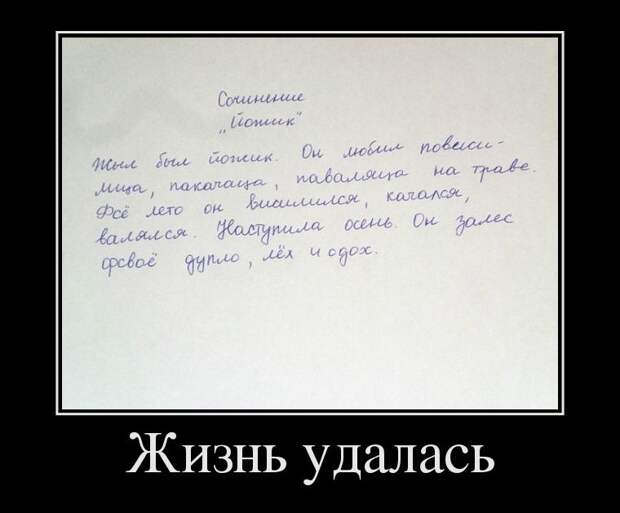 Сочинение
„Йожик"
Жыл был йожик. Он любил повеси-
лица, пакачаца, паваляцца на траве.
Фсё лето он висилился, качался,
валялся. Наступила осень. Он залес
фсваё дупло, лёх и сдох.
Жизнь удалась